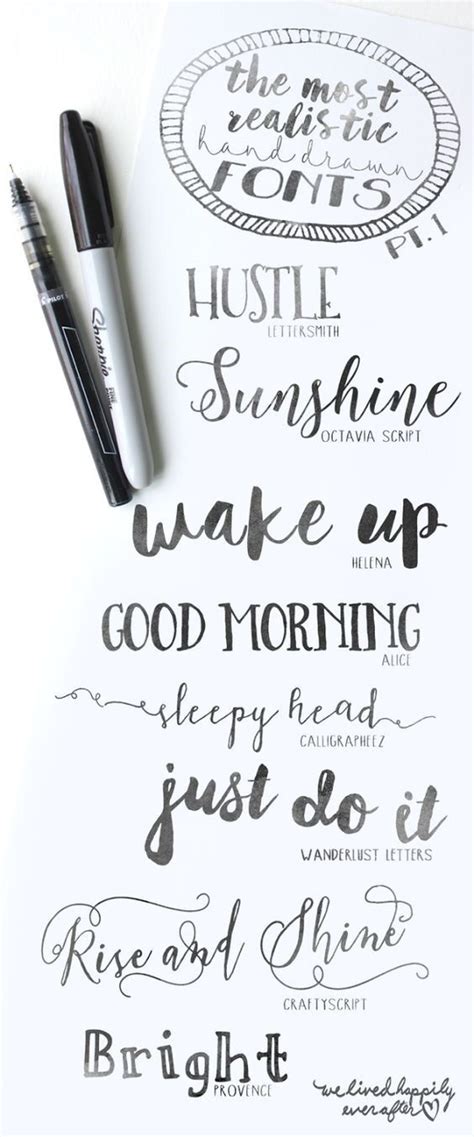 the most
realistic
hand drawn
FONTS
PT. 1
PILOT
Sharpie
HUSTLE
LETTERSMITH
Sunshine
OCTAVIA SCRIPT
wake up
HELENA
GOOD MORNING
ALICE
sleepy head
CALLIGRAPHEEZ
just do it
WANDERLUST LETTERS
Rise and Shine
CRAFTYSCRIPT
Bright
PROVENCE
we lived happily
ever after